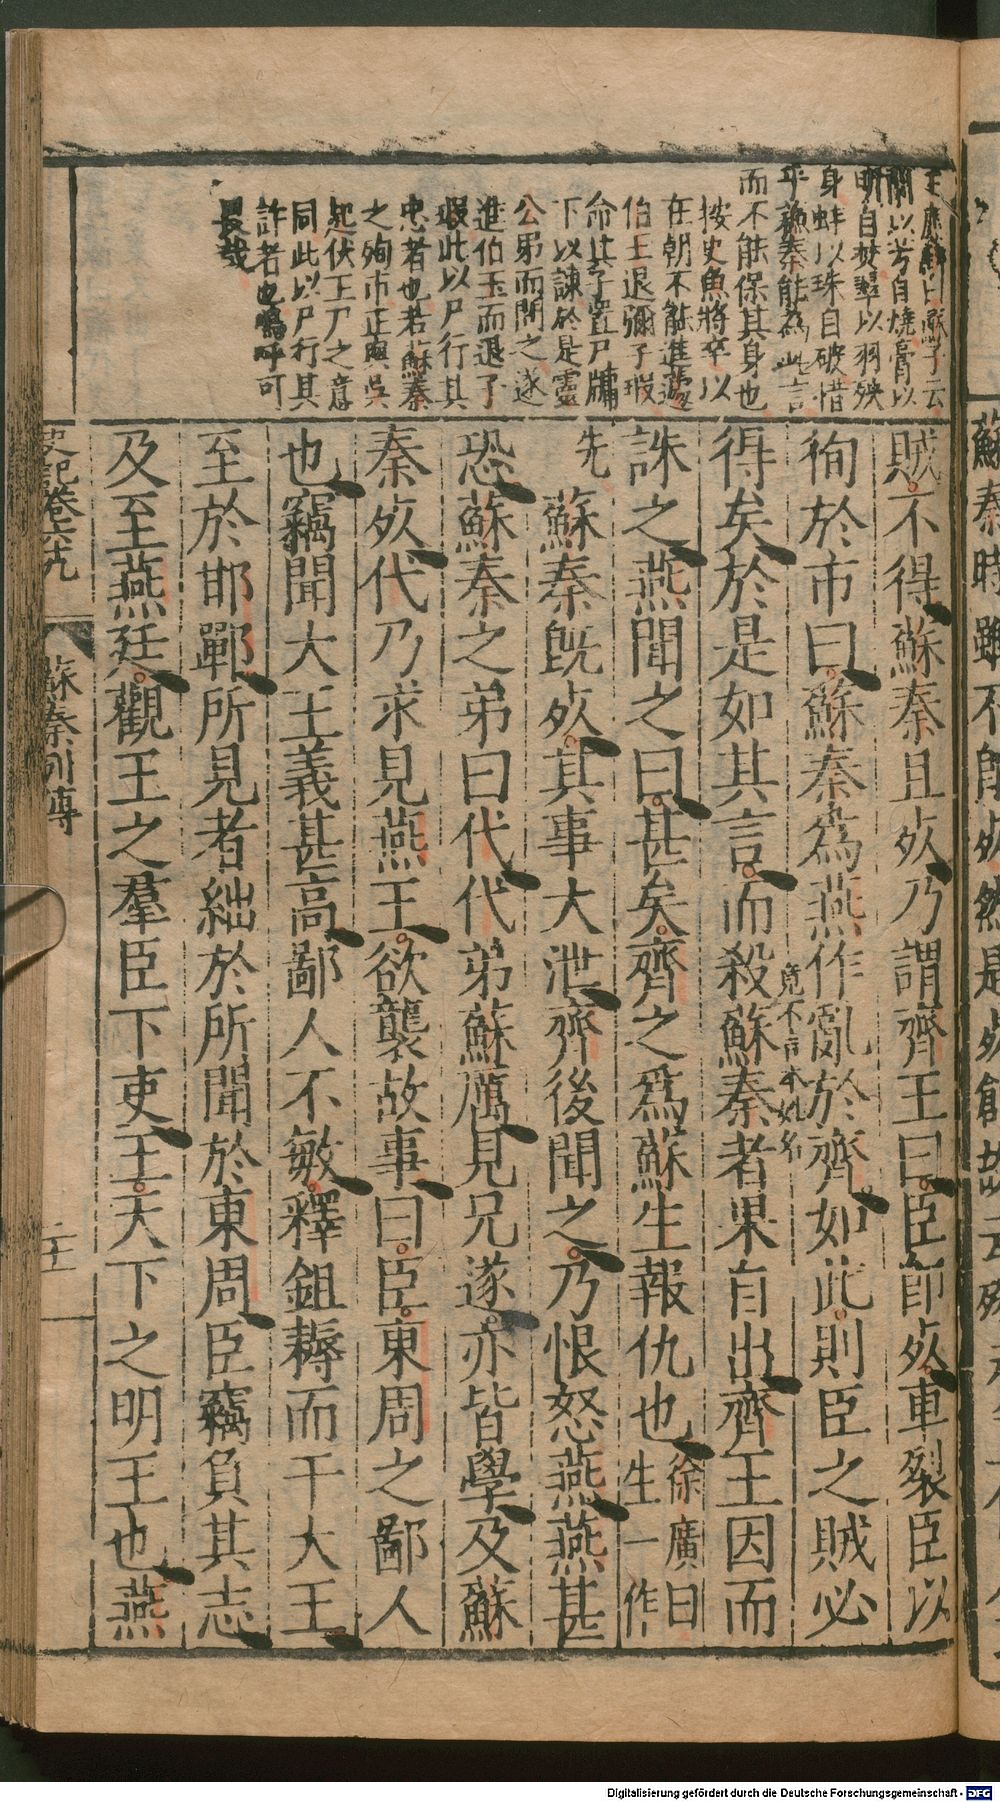 王應麟曰蘇子云
蘭以芳自燒膏以
明自焚翠以羽殃
身蚌以珠自破惜
乎蘇秦能為此言
而不能保其身也
按史魚將卒以
在朝不能進蘧
伯玉退彌子瑕
命其子置尸牖
下以諫於是靈
公弔而問之遂
進伯玉而退子
瑕此以尸行其
忠者也若蘇秦
之殉市正與吳
起伏王尸之意
同此以尸行其
詐者也嗚呼可
畏哉
賊不得蘇秦且死乃謂齊王曰臣卽死車裂臣以
徇於市曰蘇秦爲燕作亂於齊如此則臣之賊必
竟不言本姓名
得矣於是如其言而殺蘇秦者果自出齊王因而
誅之燕聞之曰甚矣齊之爲蘇生報仇也
徐廣曰
生一作
先
蘇秦旣死其事大泄齊後聞之乃恨怒燕燕甚
恐蘇秦之弟曰代代弟蘇厲見兄遂亦皆學及蘇
秦死代乃求見燕王欲襲故事曰臣東周之鄙人
也竊聞大王義甚高鄙人不敏釋鉏耨而干大王
至於邯鄲所見者絀於所聞於東周臣竊負其志
及至燕廷觀王之羣臣下吏王天下之明王也燕
史記卷六十九
蘇秦列傳
二十
Digitalisierung gefördert durch die Deutsche Forschungsgemeinschaft - DFG